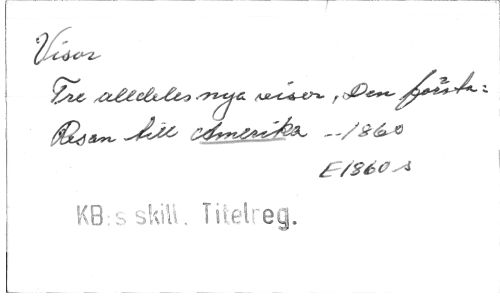 Visor
Tre alldeles nya visor, Den första:
Resan till Amerika --1860
E1860 s
KB:s skill. Titelreg.